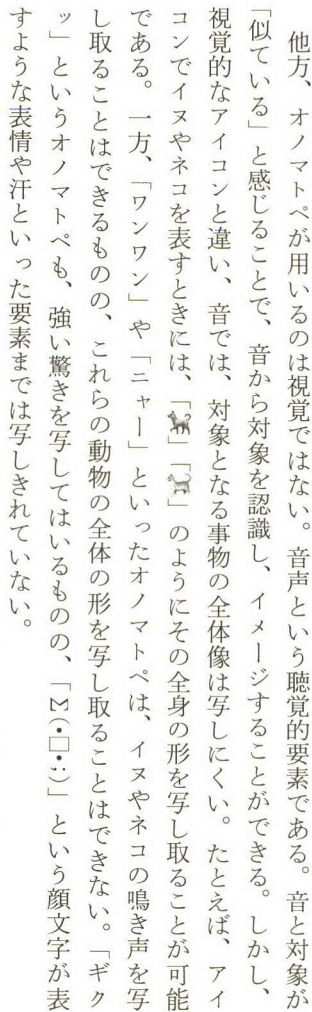 他方、オノマトペが用いるのは視覚ではない。音声という聴覚的要素である。音と対象が
「似ている」と感じることで、音から対象を認識し、イメージすることができる。しかし、
視覚的なアイコンと違い、音では、対象となる事物の全体像は写しにくい。たとえば、アイ
コンでイヌやネコを表すときには、「🐕」「🐈」のようにその全身の形を写し取ることが可能
である。一方、「ワンワン」や「ニャー」といったオノマトペは、イヌやネコの鳴き声を写
し取ることはできるものの、これらの動物の全体の形を写し取ることはできない。「ギク
ッ」というオノマトペも、強い驚きを写してはいるものの、「Σ(・□・;)」という顔文字が表
すような表情や汗といった要素までは写しきれていない。